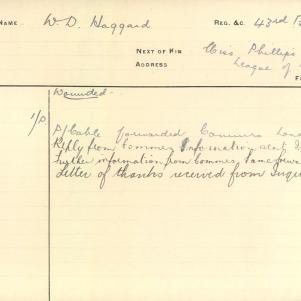 NAME W. D. Haggard REG. &C. 43rd
NEXT OF KIN Miss Phillips
ADDRESS League of
Wounded
P/Cable forwarded
Reply from Commrs Information sent
Further information from Commrs
Letter of thanks received from